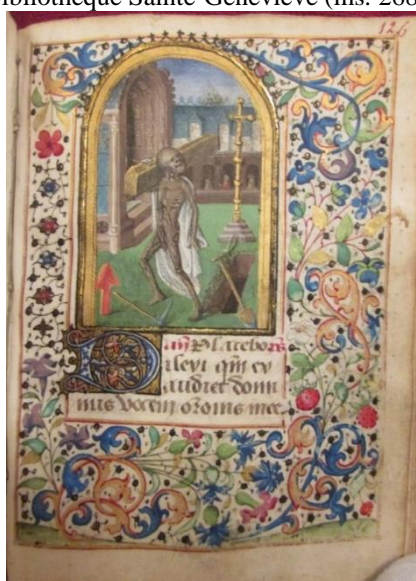 ibliothèque Sainte-Geneviève (ms. 268
126
añ Placebo
Dilexi qm̄ ex
audiet domi
nus vocem orōnis mee